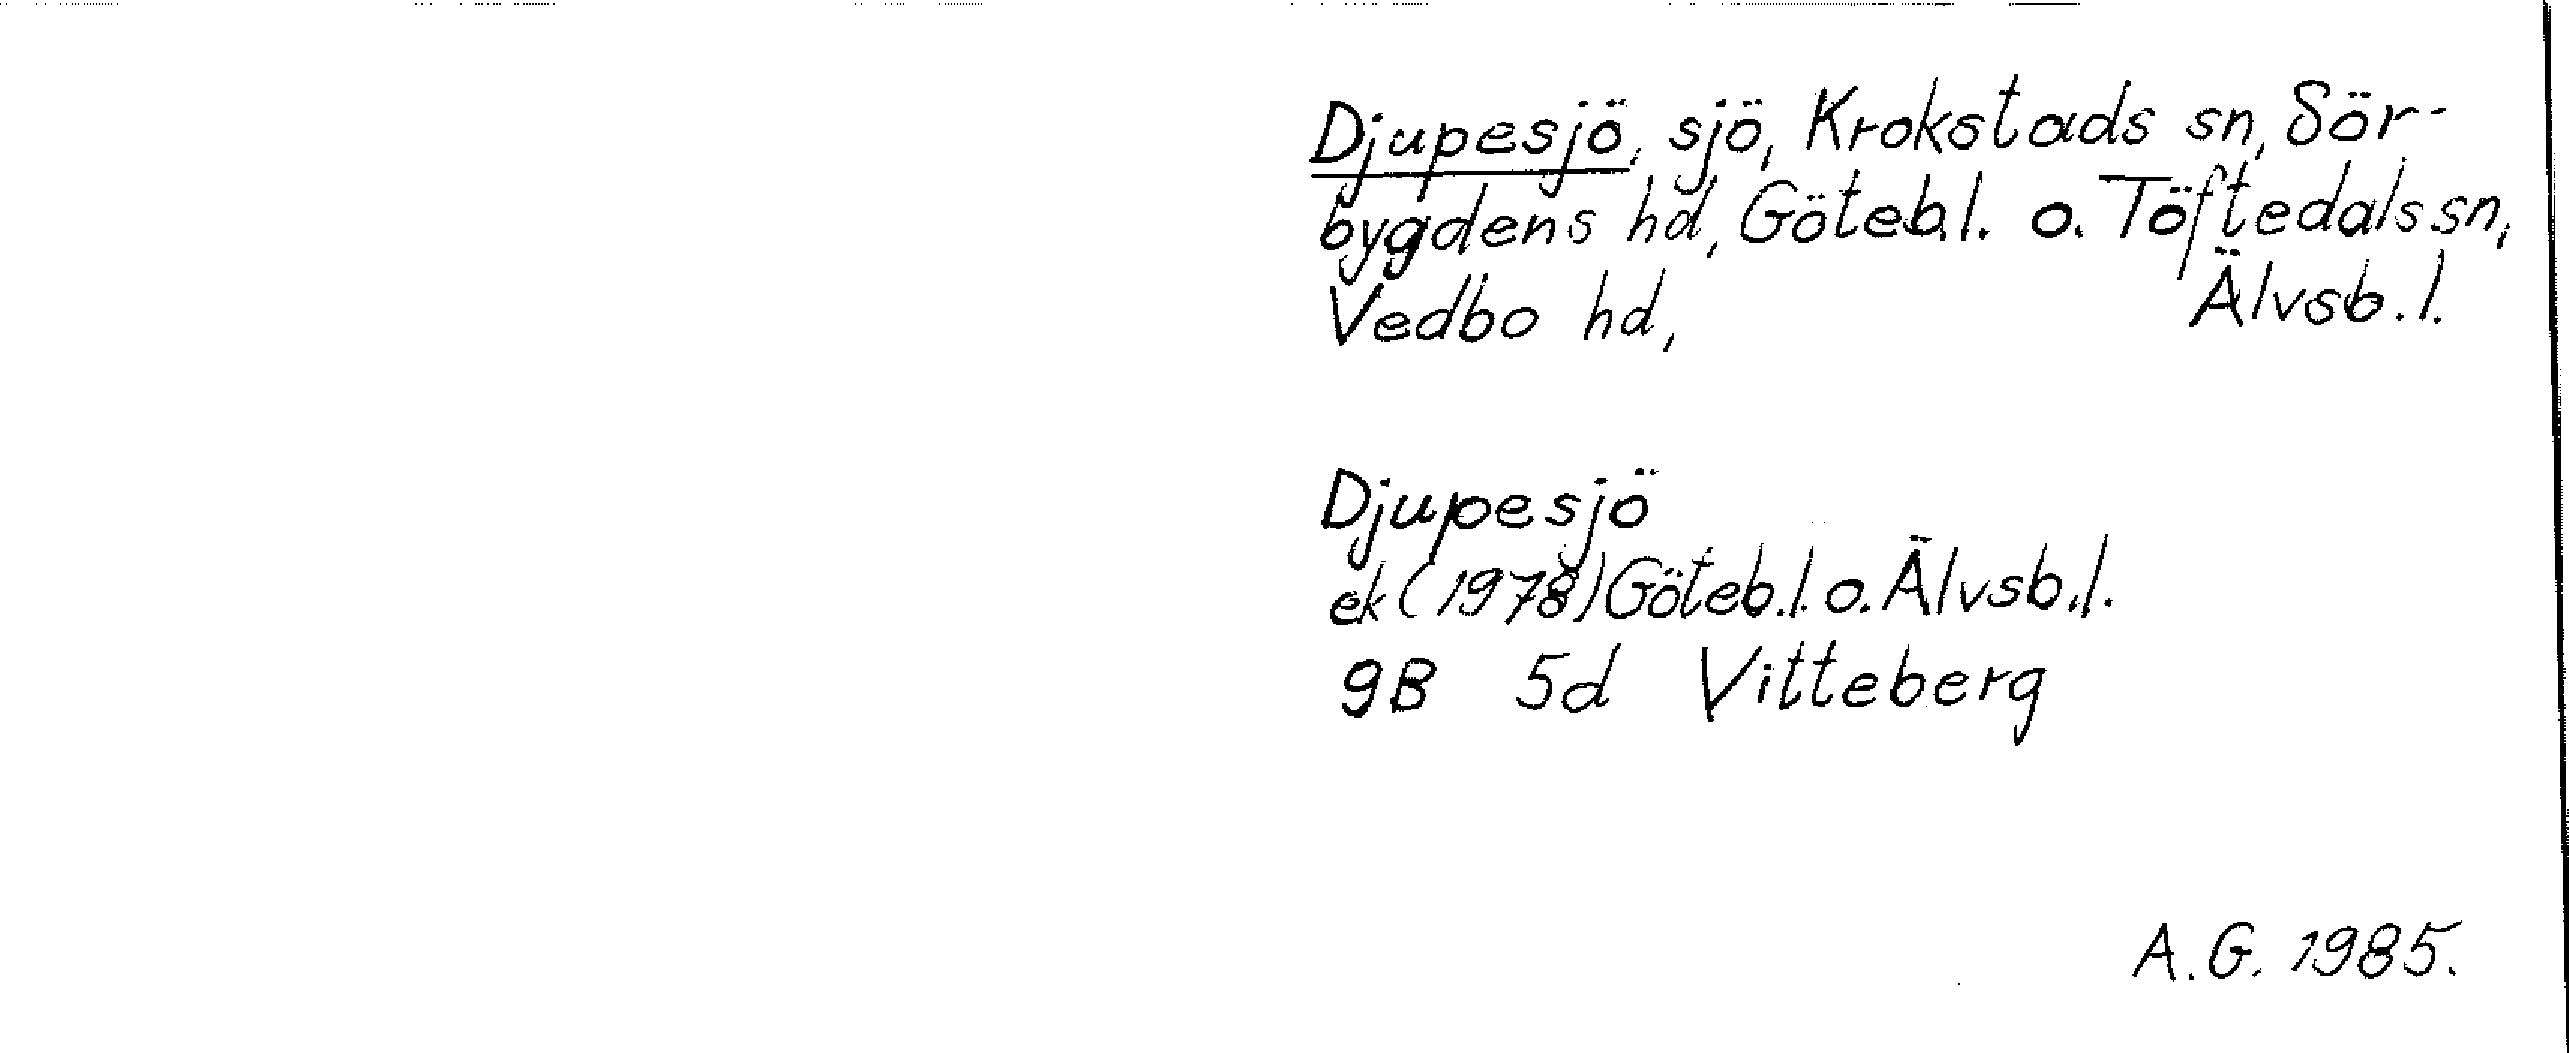 Djupesjö, sjö, Krokstads sn, Sör-
bygdens hd, Göteb.l. o. Töftedals sn,
Vedbo hd, Älvsb.l.
Djupesjö
ek (1978) Göteb.l. o. Älvsb.l.
9B 5d Vitteberg
A.G. 1985.